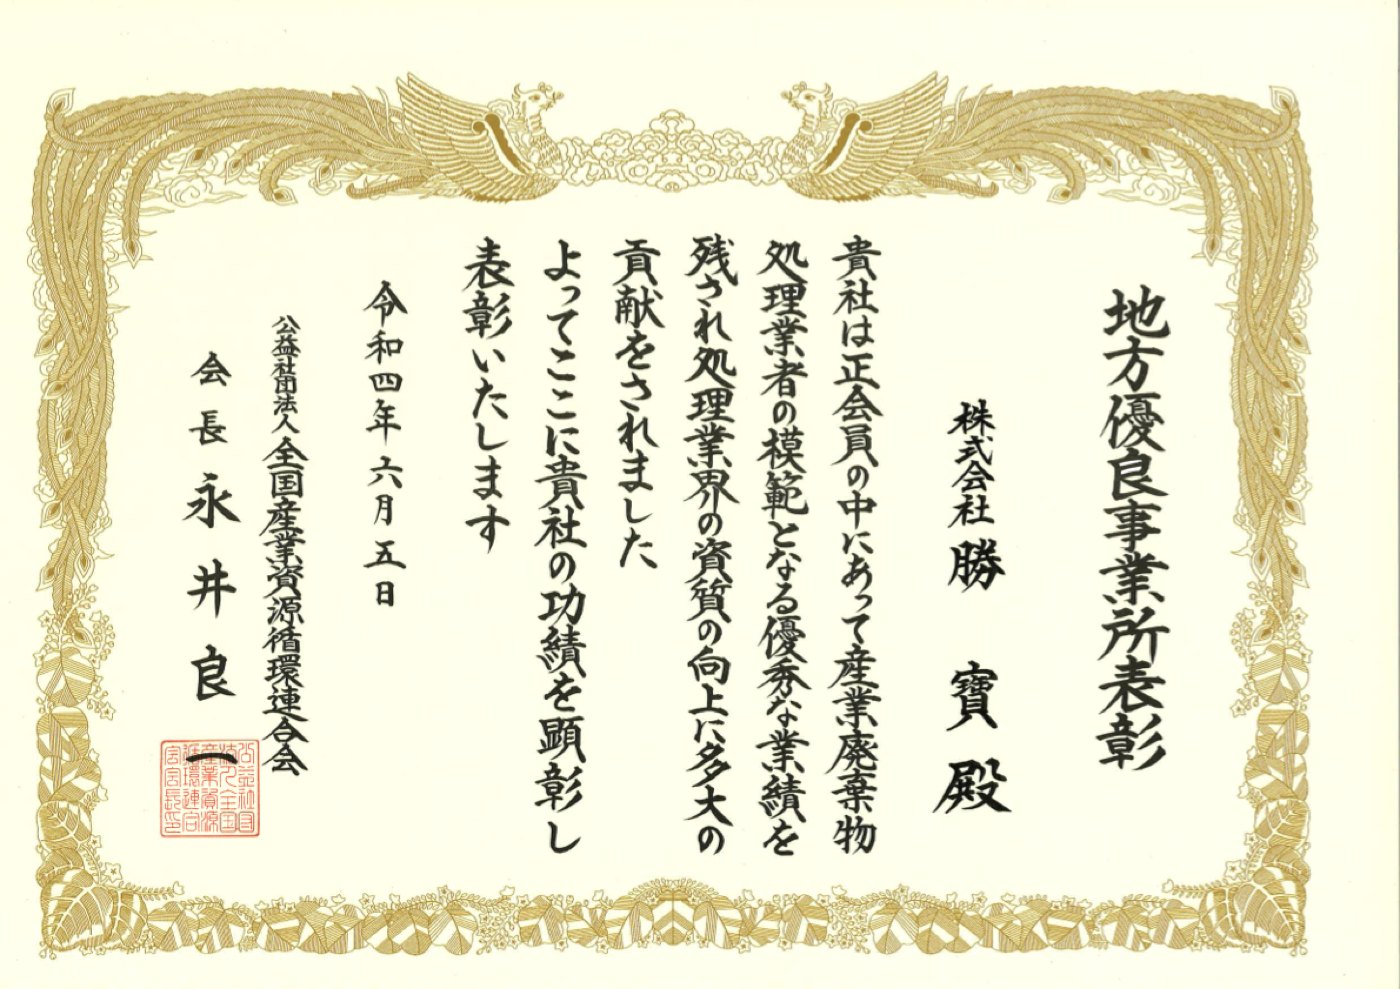 地方優良事業所表彰
株式会社 勝 寶 殿
貴社は正会員の中にあって産業廃棄物
処理業者の模範となる優秀な業績を
残され処理業界の資質の向上に多大の
貢献をされました
よってここに貴社の功績を顕彰し
表彰いたします
令和四年六月五日
公益社団法人全国産業資源循環連合会
会長 永井良一